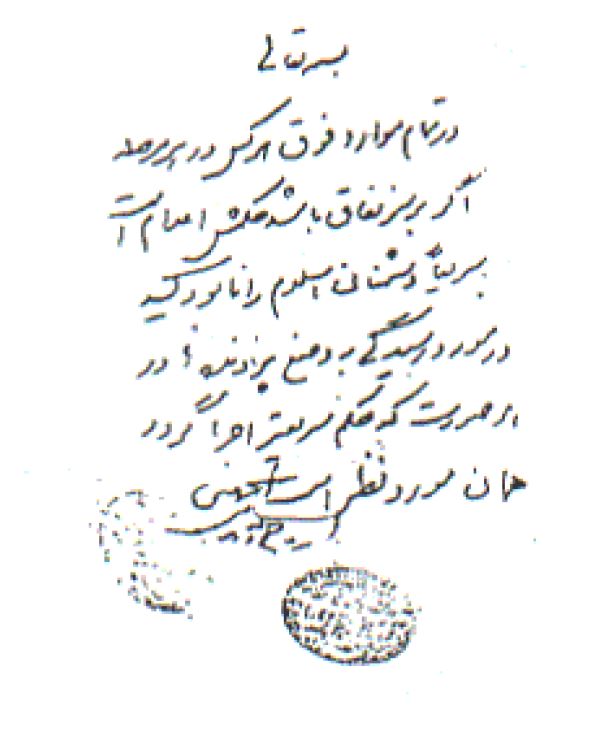 بسمه تعالی
در تمام موارد فوق هر کس در هر مرحله
اگر بر سر نفاق باشد حکمش اعدام است
سریعاً دشمنان اسلام را نابود کنید
در مورد رسیدگی به وضع پرونده‌ها در
هر صورت که حکم سریعتر اجرا گردد
همان مورد نظر است
روح الله الموسوی الخمینی